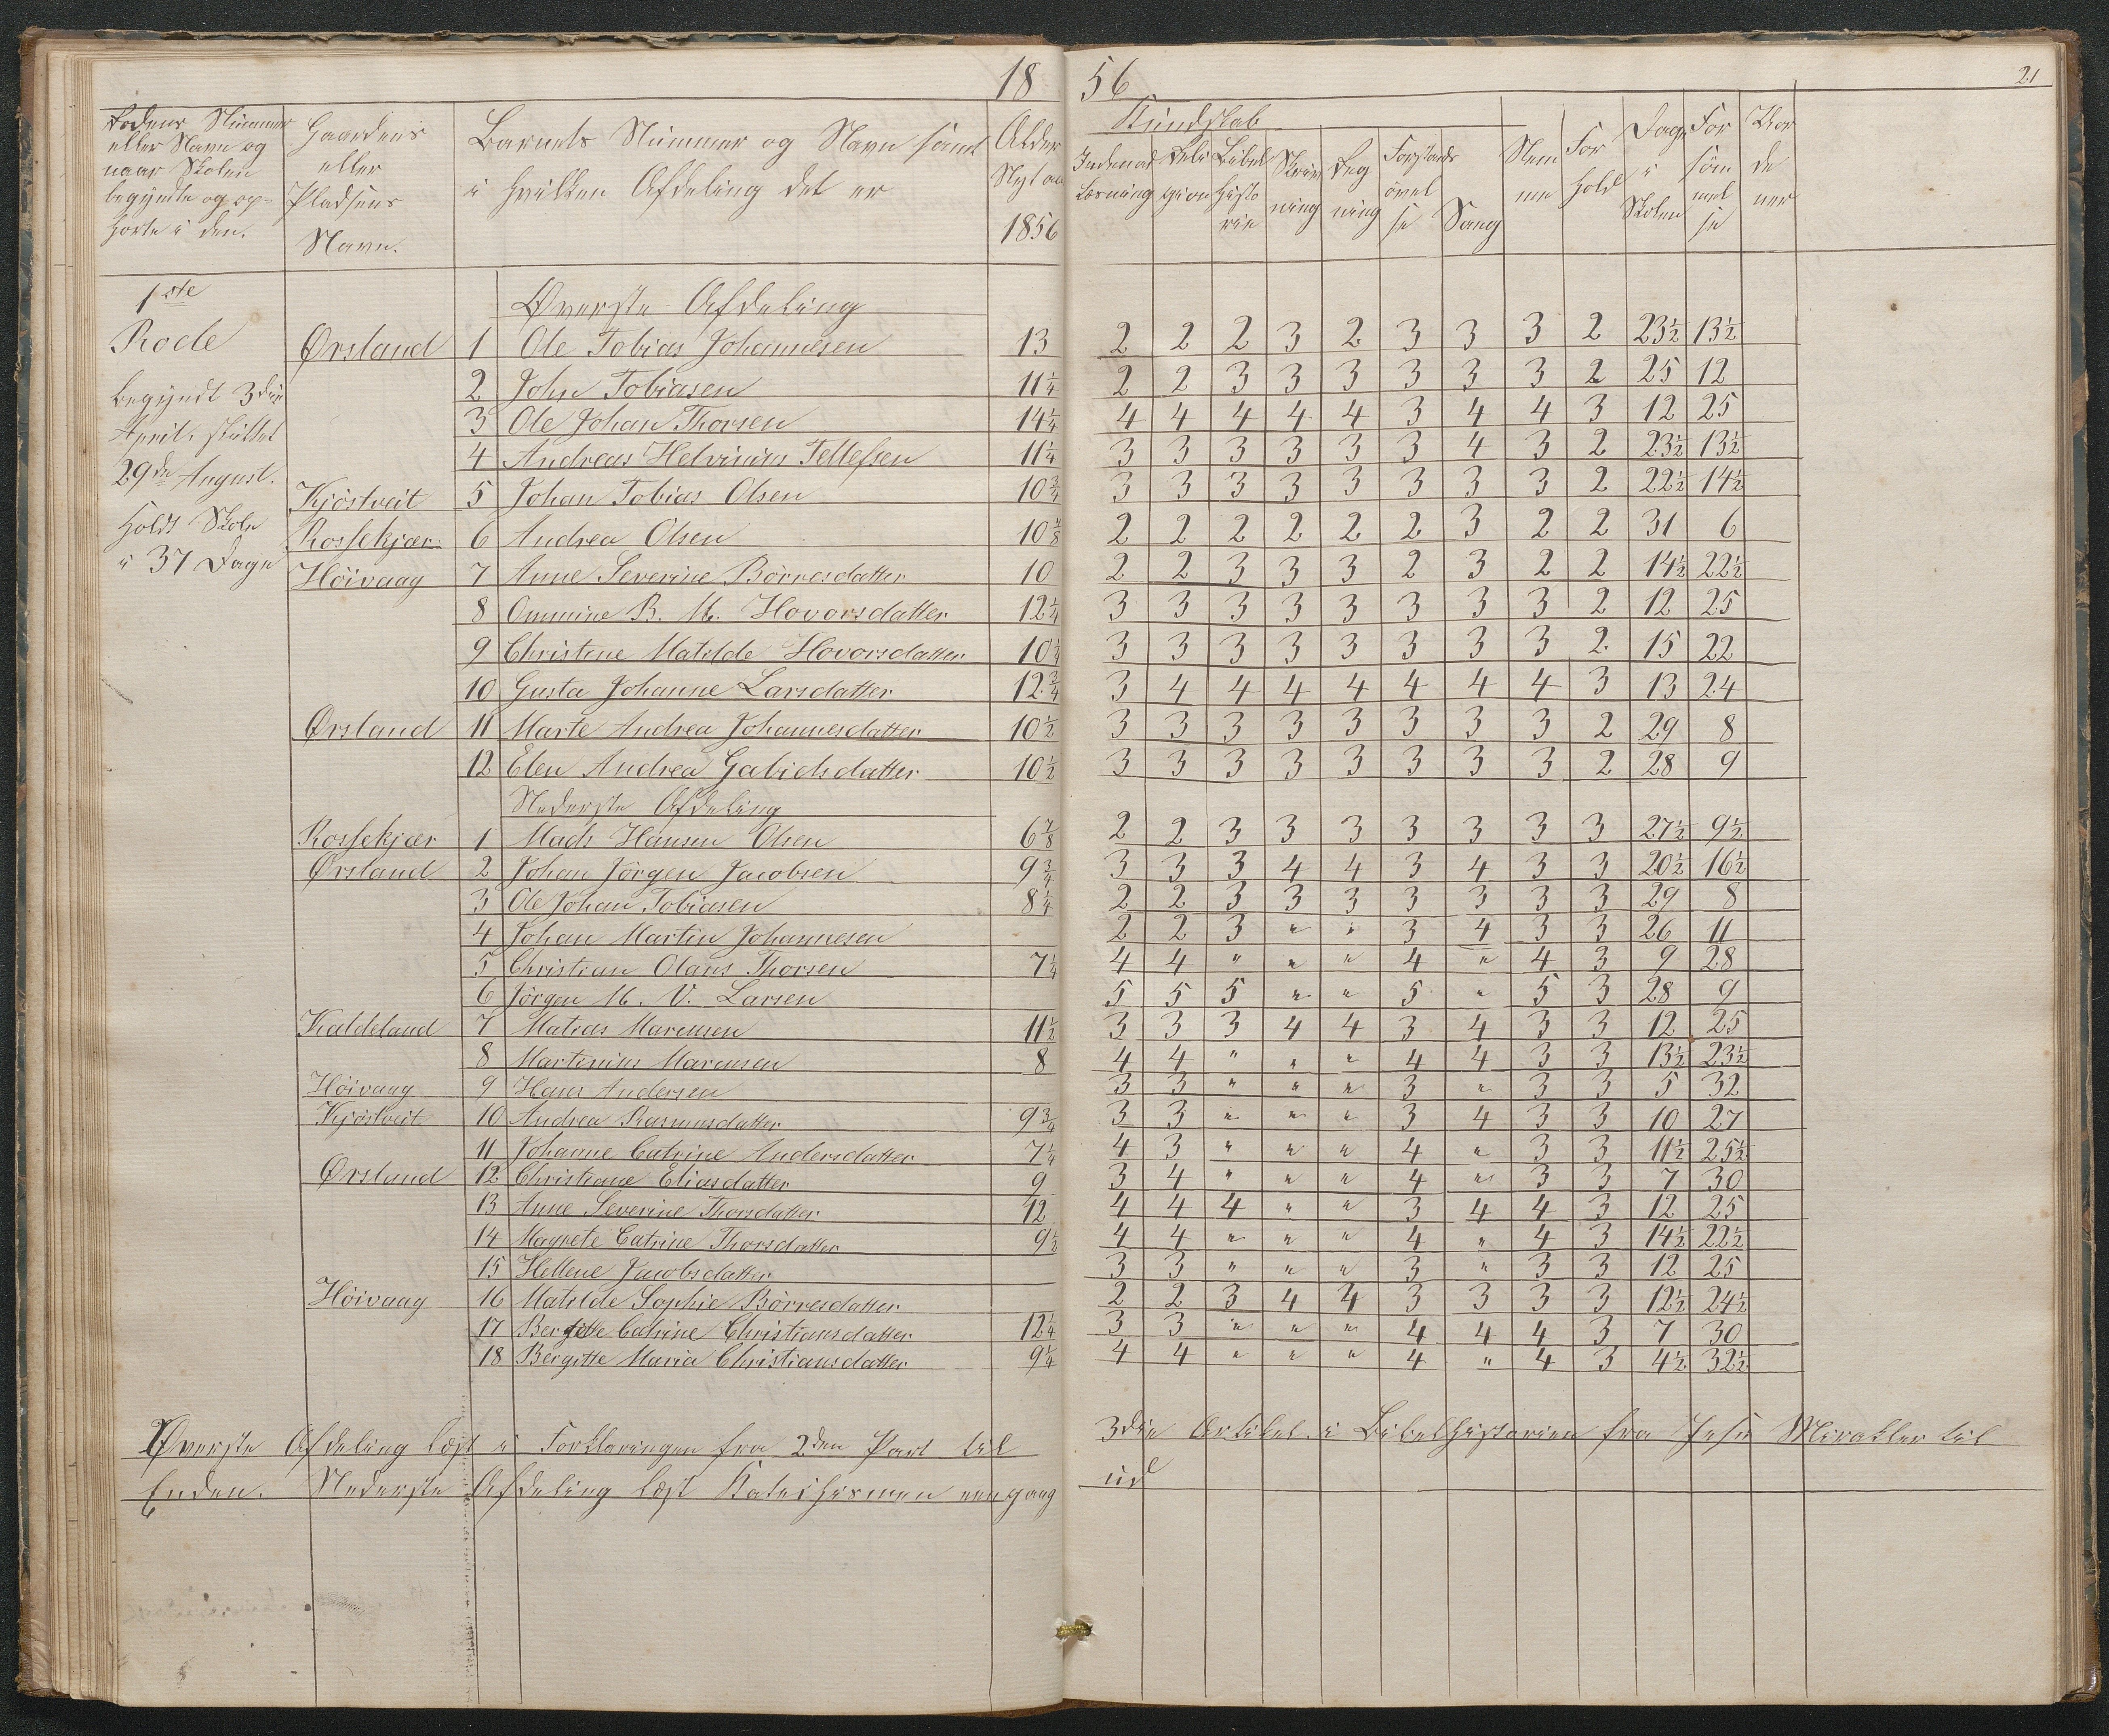 18 56
21
Rodens Nummer eller Navn og naar Skolen begyndte og ophørte i den.
Gaardens eller Pladsens Navn.
Barnets Nummer og Navn samt i hvilken Afdeling det er
Alder Nytaar 1856
Kundskab
Indenad Læsning
Religion
Bibelhistorie
Skrivning
Regning
Forstandsøvelse
Sang
Nemme
Forhold
Dage i Skolen
Forsømmelse
1ste Rode
Begyndt 3die April, sluttet 29de August. Holdt Skole i 37 Dage
Øverste Afdeling
Ørsland 1 Ole Tobias Johannesen 13 2 2 2 3 2 3 3 3 2 23½ 13½
2 John Tobiasen 11¼ 2 2 3 3 3 3 3 3 2 25 12
3 Ole Johan Thorsen 14¼ 4 4 4 4 4 3 4 4 3 12 25
4 Andreas Helvinius Tellefsen 11¼ 3 3 3 3 3 3 4 3 2 23½ 13½
Kjöstveit 5 Johan Tobias Olsen 10¾ 3 3 3 3 3 3 3 3 2 22½ 14½
Rossekjær 6 Andrea Olsen 10 2 2 2 2 2 2 3 2 2 31 6
Höivaag 7 Anne Severine Börresdatter 10 2 2 3 3 3 2 3 2 2 14½ 22½
8 Ommine B. M. Hovorsdatter 12¼ 3 3 3 3 3 3 3 3 2 12 25
9 Christine Matilde Hovorsdatter 10¼ 3 3 3 3 3 3 3 3 2 15 22
10 Gusta Johanne Larsdatter 12¾ 3 4 4 4 4 4 4 4 3 13 24
Ørsland 11 Marte Andrea Johannesdatter 10½ 3 3 3 3 3 3 3 3 2 29 8
12 Elen Andrea Gabielsdatter 10½ 3 3 3 3 3 3 3 3 2 28 9
Nederste Afdeling
Rossekjær 1 Mads Hansen Olsen 6⅞ 2 2 3 3 3 3 3 3 3 27½ 9½
Ørsland 2 Johan Jörgen Jacobsen 9¾ 3 3 3 4 4 3 4 3 3 20½ 16½
3 Ole Johan Tobiasen 8¼ 2 2 3 3 3 3 3 3 3 29 8
4 Johan Martin Johannesen 2 2 3 " " 3 4 3 3 26 11
5 Christian Olaus Thorsen 7¼ 4 4 " " " 4 " 4 3 9 28
6 Jörgen M. V. Larsen 5 5 5 " " 5 " 5 3 28 9
Kaldeland 7 Matias Marcusen 11½ 3 3 3 4 4 3 4 3 3 12 25
8 Martinius Marcusen 8 4 4 " " " 4 4 3 3 13½ 23½
Höivaag 9 Hans Andersen 3 3 " " " 3 " 3 3 5 32
Kjöstveit 10 Andrea Rasmusdatter 9¾ 3 3 " " " 3 4 3 3 10 27
11 Johanne Catrine Andersdatter 7¼ 4 3 " " " 4 " 3 3 11½ 25½
Ørsland 12 Christiane Eliasdatter 9 3 4 " " " 4 " 3 3 7 30
13 Anne Severine Thorsdatter 12 4 4 4 " " 3 4 4 3 12 25
14 Magrete Catrine Thorsdatter 9½ 4 4 " " " 4 " 4 3 14½ 22½
15 Hellene Jacobsdatter 3 3 " " " 3 " 3 3 12 25
Höivaag 16 Matilde Sophie Börresdatter 2 2 3 4 4 3 3 3 3 12½ 24½
17 Bergitte Catrine Christiansdatter 12¼ 3 3 " " " 4 4 4 3 7 30
18 Bergitte Maria Christiansdatter 9¼ 4 4 " " " 4 " 4 3 4½ 32½
Øverste Afdeling læst i Forklaringen fra 2den Part til 3die Artikel. i Bibelhistorien fra Jesu Mirakler til
Enden. Nederste Afdeling læst Katechismen eengang ud